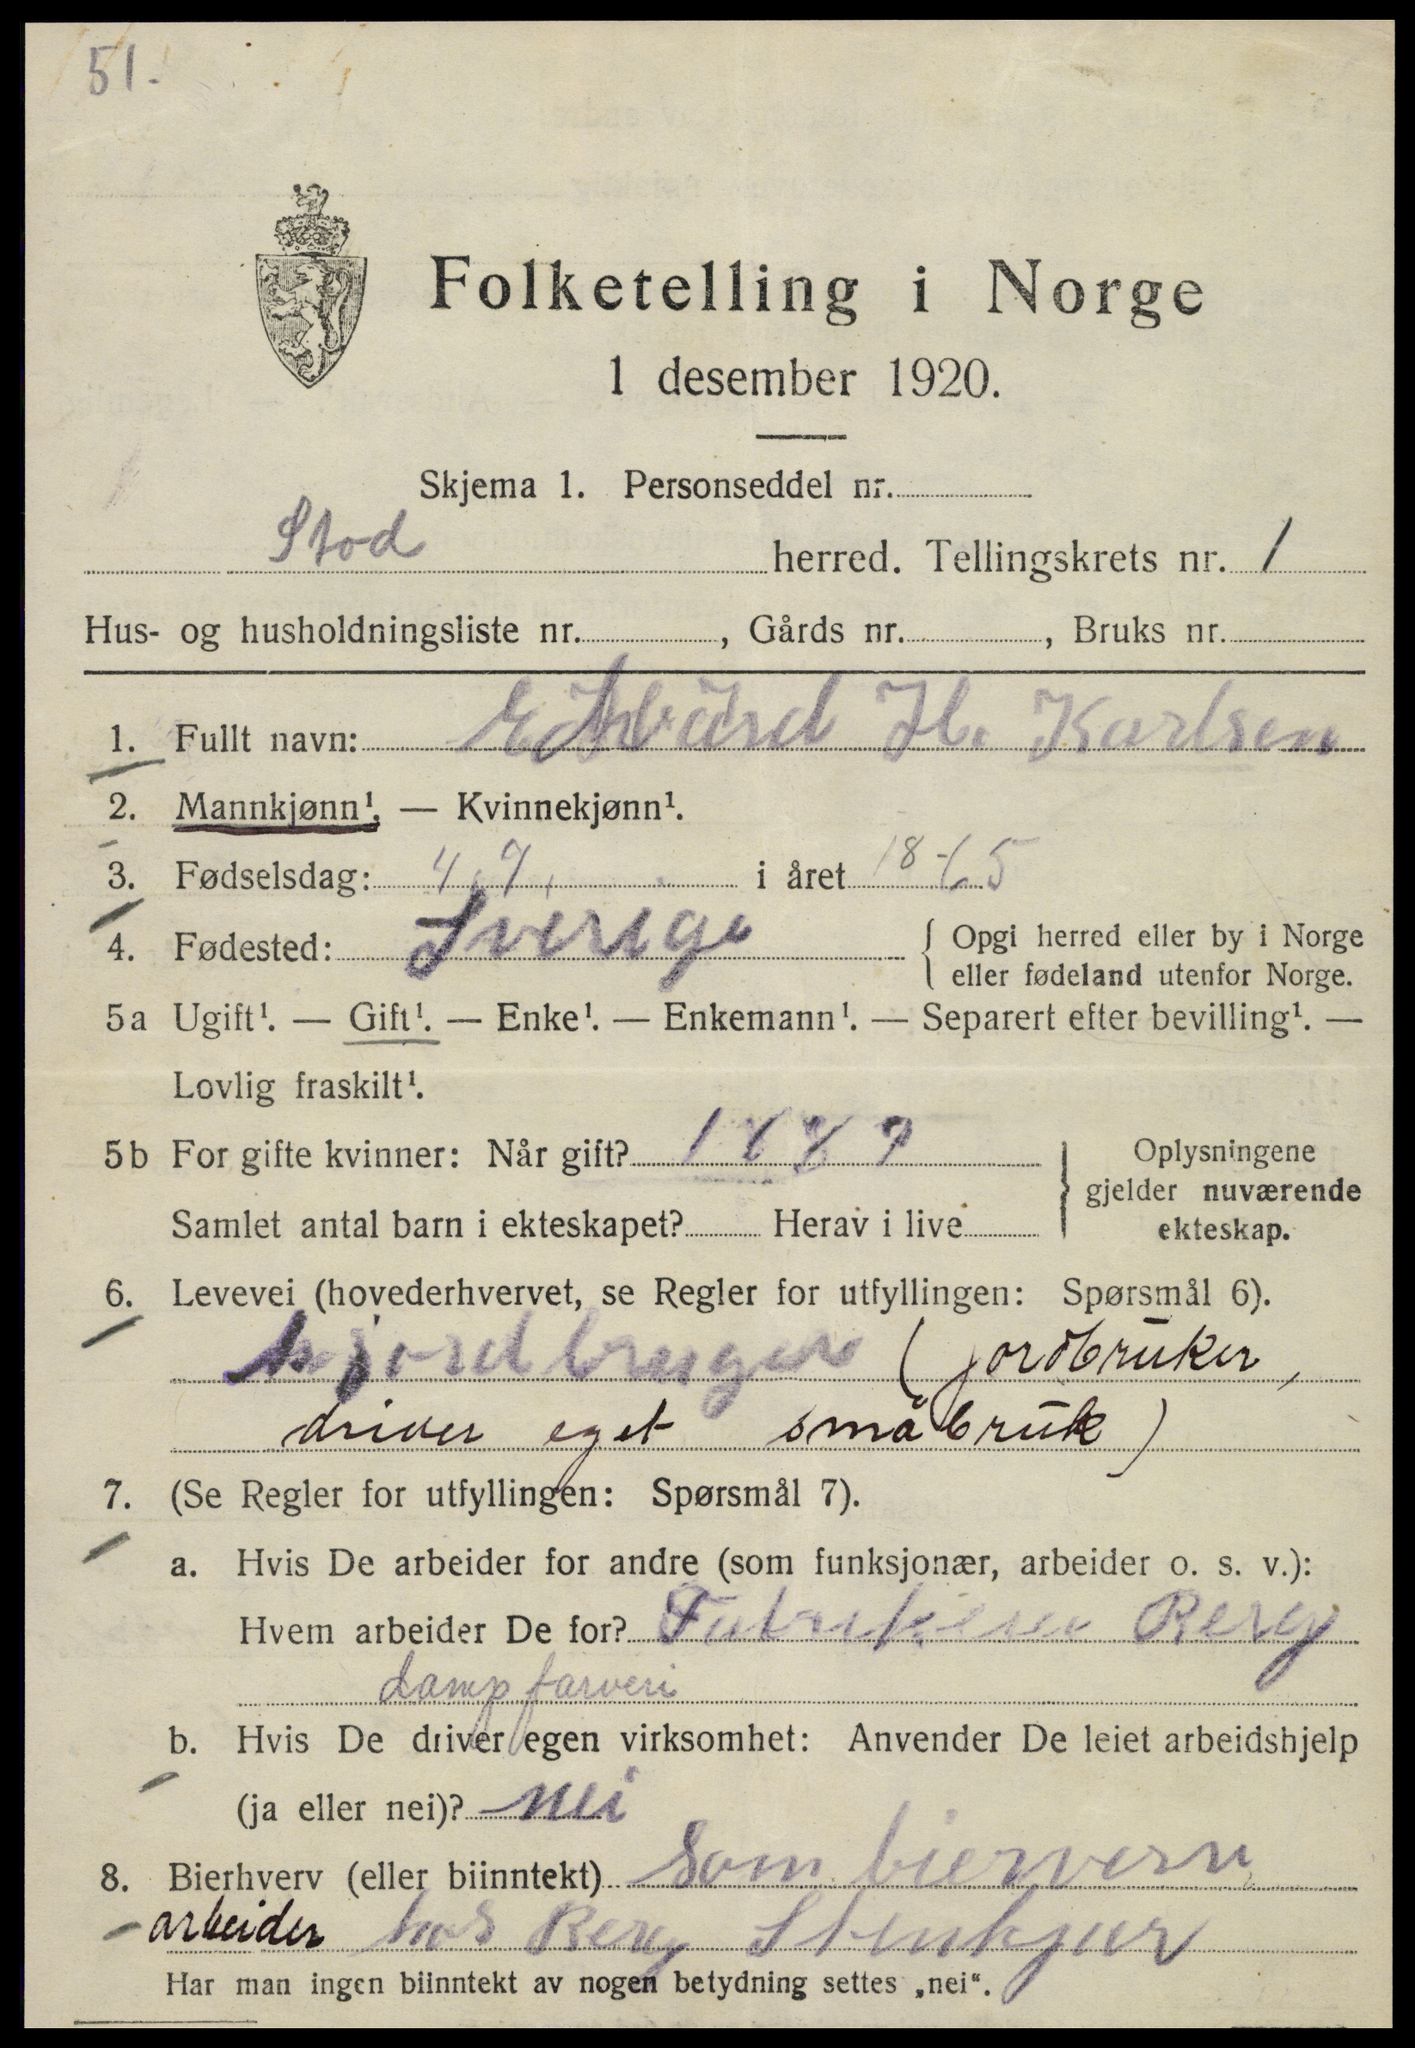 51.
Folketelling i Norge
1 desember 1920.
Skjema 1. Personseddel nr.
Stod herred. Tellingskrets nr. 1
Hus- og husholdningsliste nr. , Gårds nr. , Bruks nr.
1. Fullt navn: H. Karlsen
2. Mannkjønn¹. — Kvinnekjønn¹.
3. Fødselsdag: 4. 7. i året 1865
4. Fødested: Sverige { Opgi herred eller by i Norge
eller fødeland utenfor Norge.
5a Ugift¹. — Gift¹. — Enke¹. — Enkemann¹. — Separert efter bevilling¹. —
Lovlig fraskilt¹.
5b For gifte kvinner: Når gift? 1887 } Oplysningene
gjelder nuværende
Samlet antal barn i ekteskapet? Herav i live
ekteskap.
6. Levevei (hovederhvervet, se Regler for utfyllingen: Spørsmål 6).
jordbruger (jordbruker,
driver eget småbruk)
7. (Se Regler for utfyllingen: Spørsmål 7).
a. Hvis De arbeider for andre (som funksjonær, arbeider o. s. v.):
Hvem arbeider De for? Berg
Dampfarveri
b. Hvis De driver egen virksomhet: Anvender De leiet arbeidshjelp
(ja eller nei)? nei
8. Bierhverv (eller biinntekt) som bierverv
arbeider hos Berg Stenkjær
Har man ingen biinntekt av nogen betydning settes „nei“.